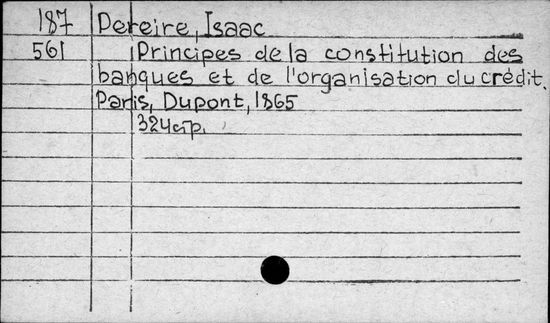 187 Pereire, Isaac
561 Principes de la constitution des
banques et de l'organisation du crédit.
Paris, Dupont, 1865
324 c̄p.